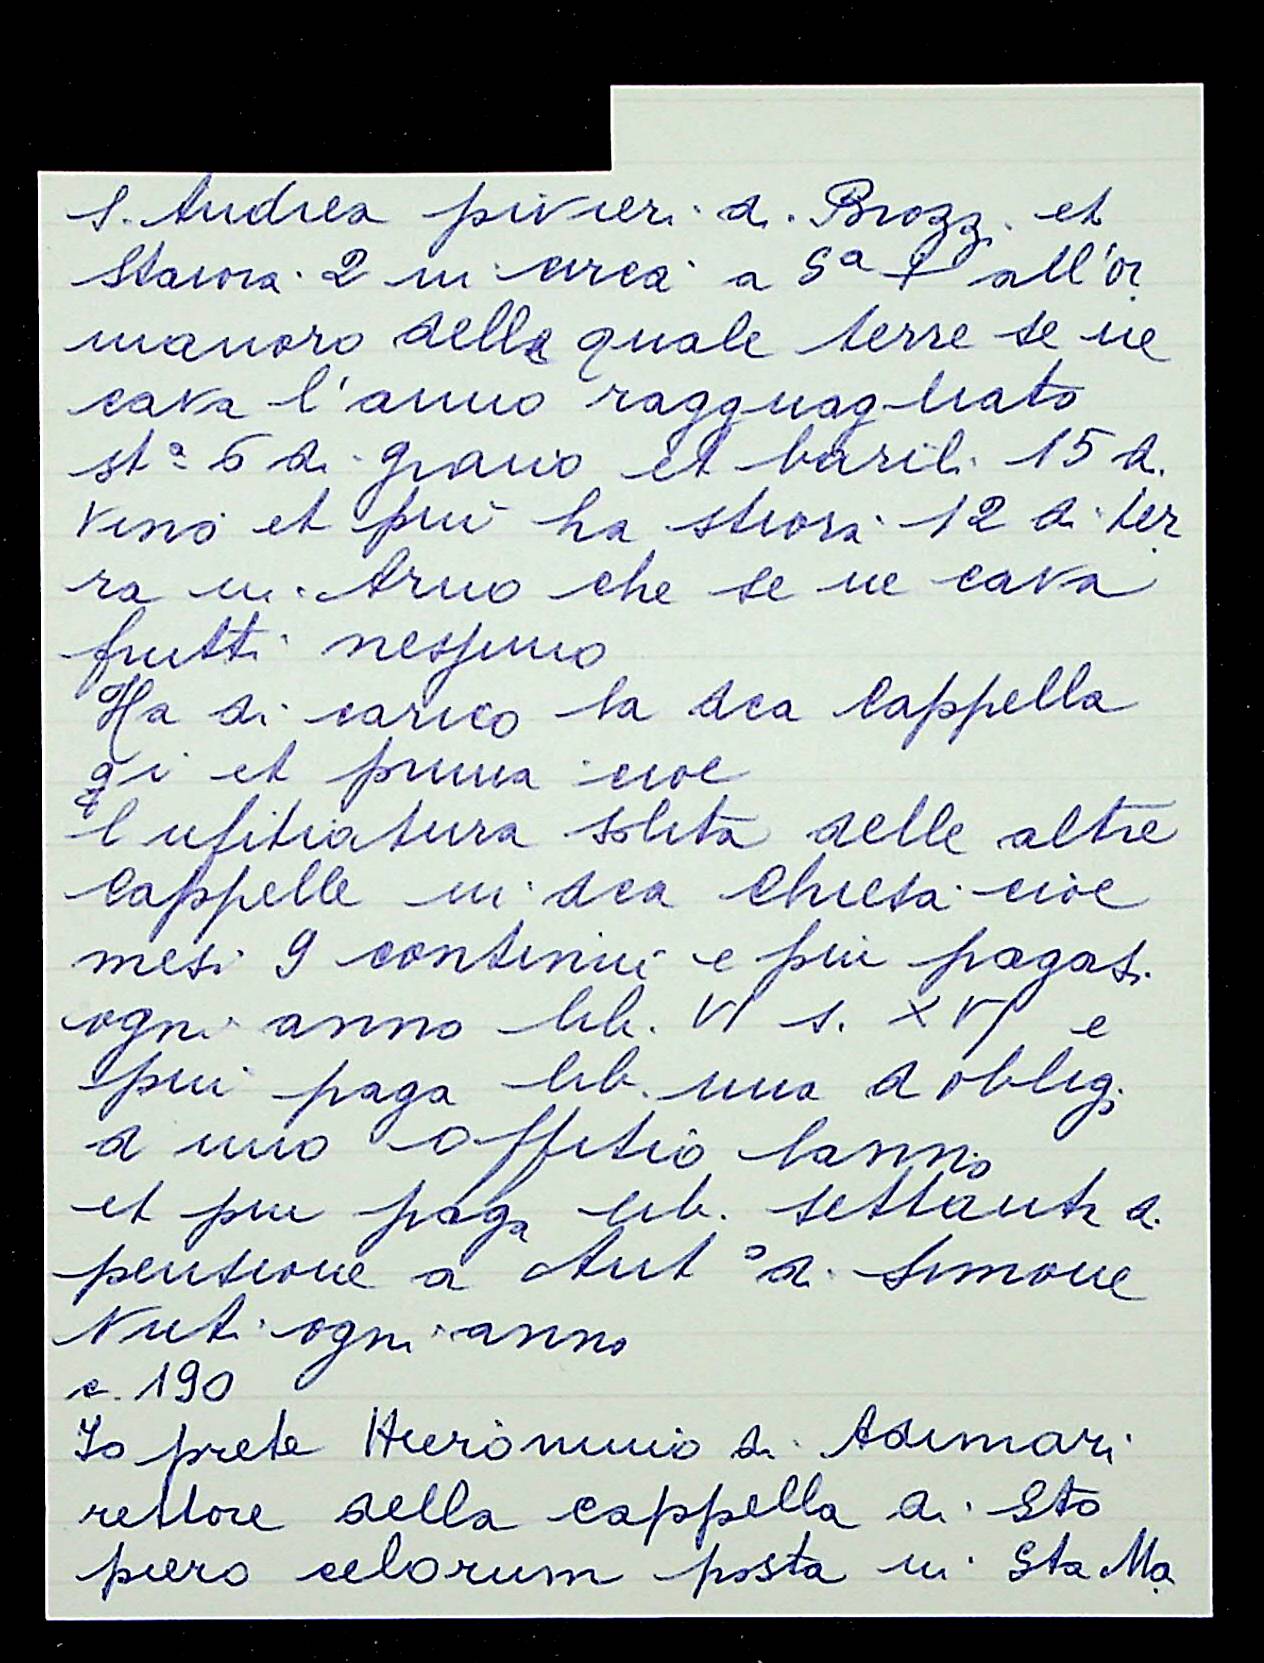 S. Andrea pivieri di Brozzi et
staiora 2 in circa a Sa + all'or
manoro delle quale terre se ne
cava l'anno ragguagliato
sta 6 di grano et barili 15 di
vino et più ha stiora 12 di ter
ra in Arno che se ne cava
frutti nessuno
Ha di carico la dca Cappella
qi et prima cioe
l ufitiatura solita delle altre
Cappelle in dca Chiesa cioe
mesi 9 continui e piu pagasi
ogni anno lib. VI s. XVI e
piu paga lib. una d oblig.
a uno offitio lanno
et piu paga lib. settanta di
pensione a Anto di Simone
Nuti ogni anno
c. 190
Io prete Hieronimo di Adimari
rettore della cappella di Sto
piero celorum posta in Sta Ma